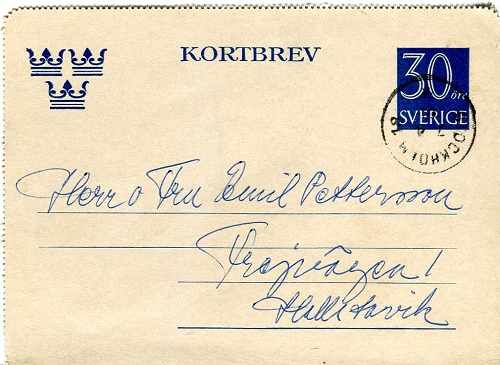 KORTBREV
30 öre
SVERIGE
STOCKHOLM 16
Herr o Fru Emil Pettersson
Frejvägen 1
Hallstavik